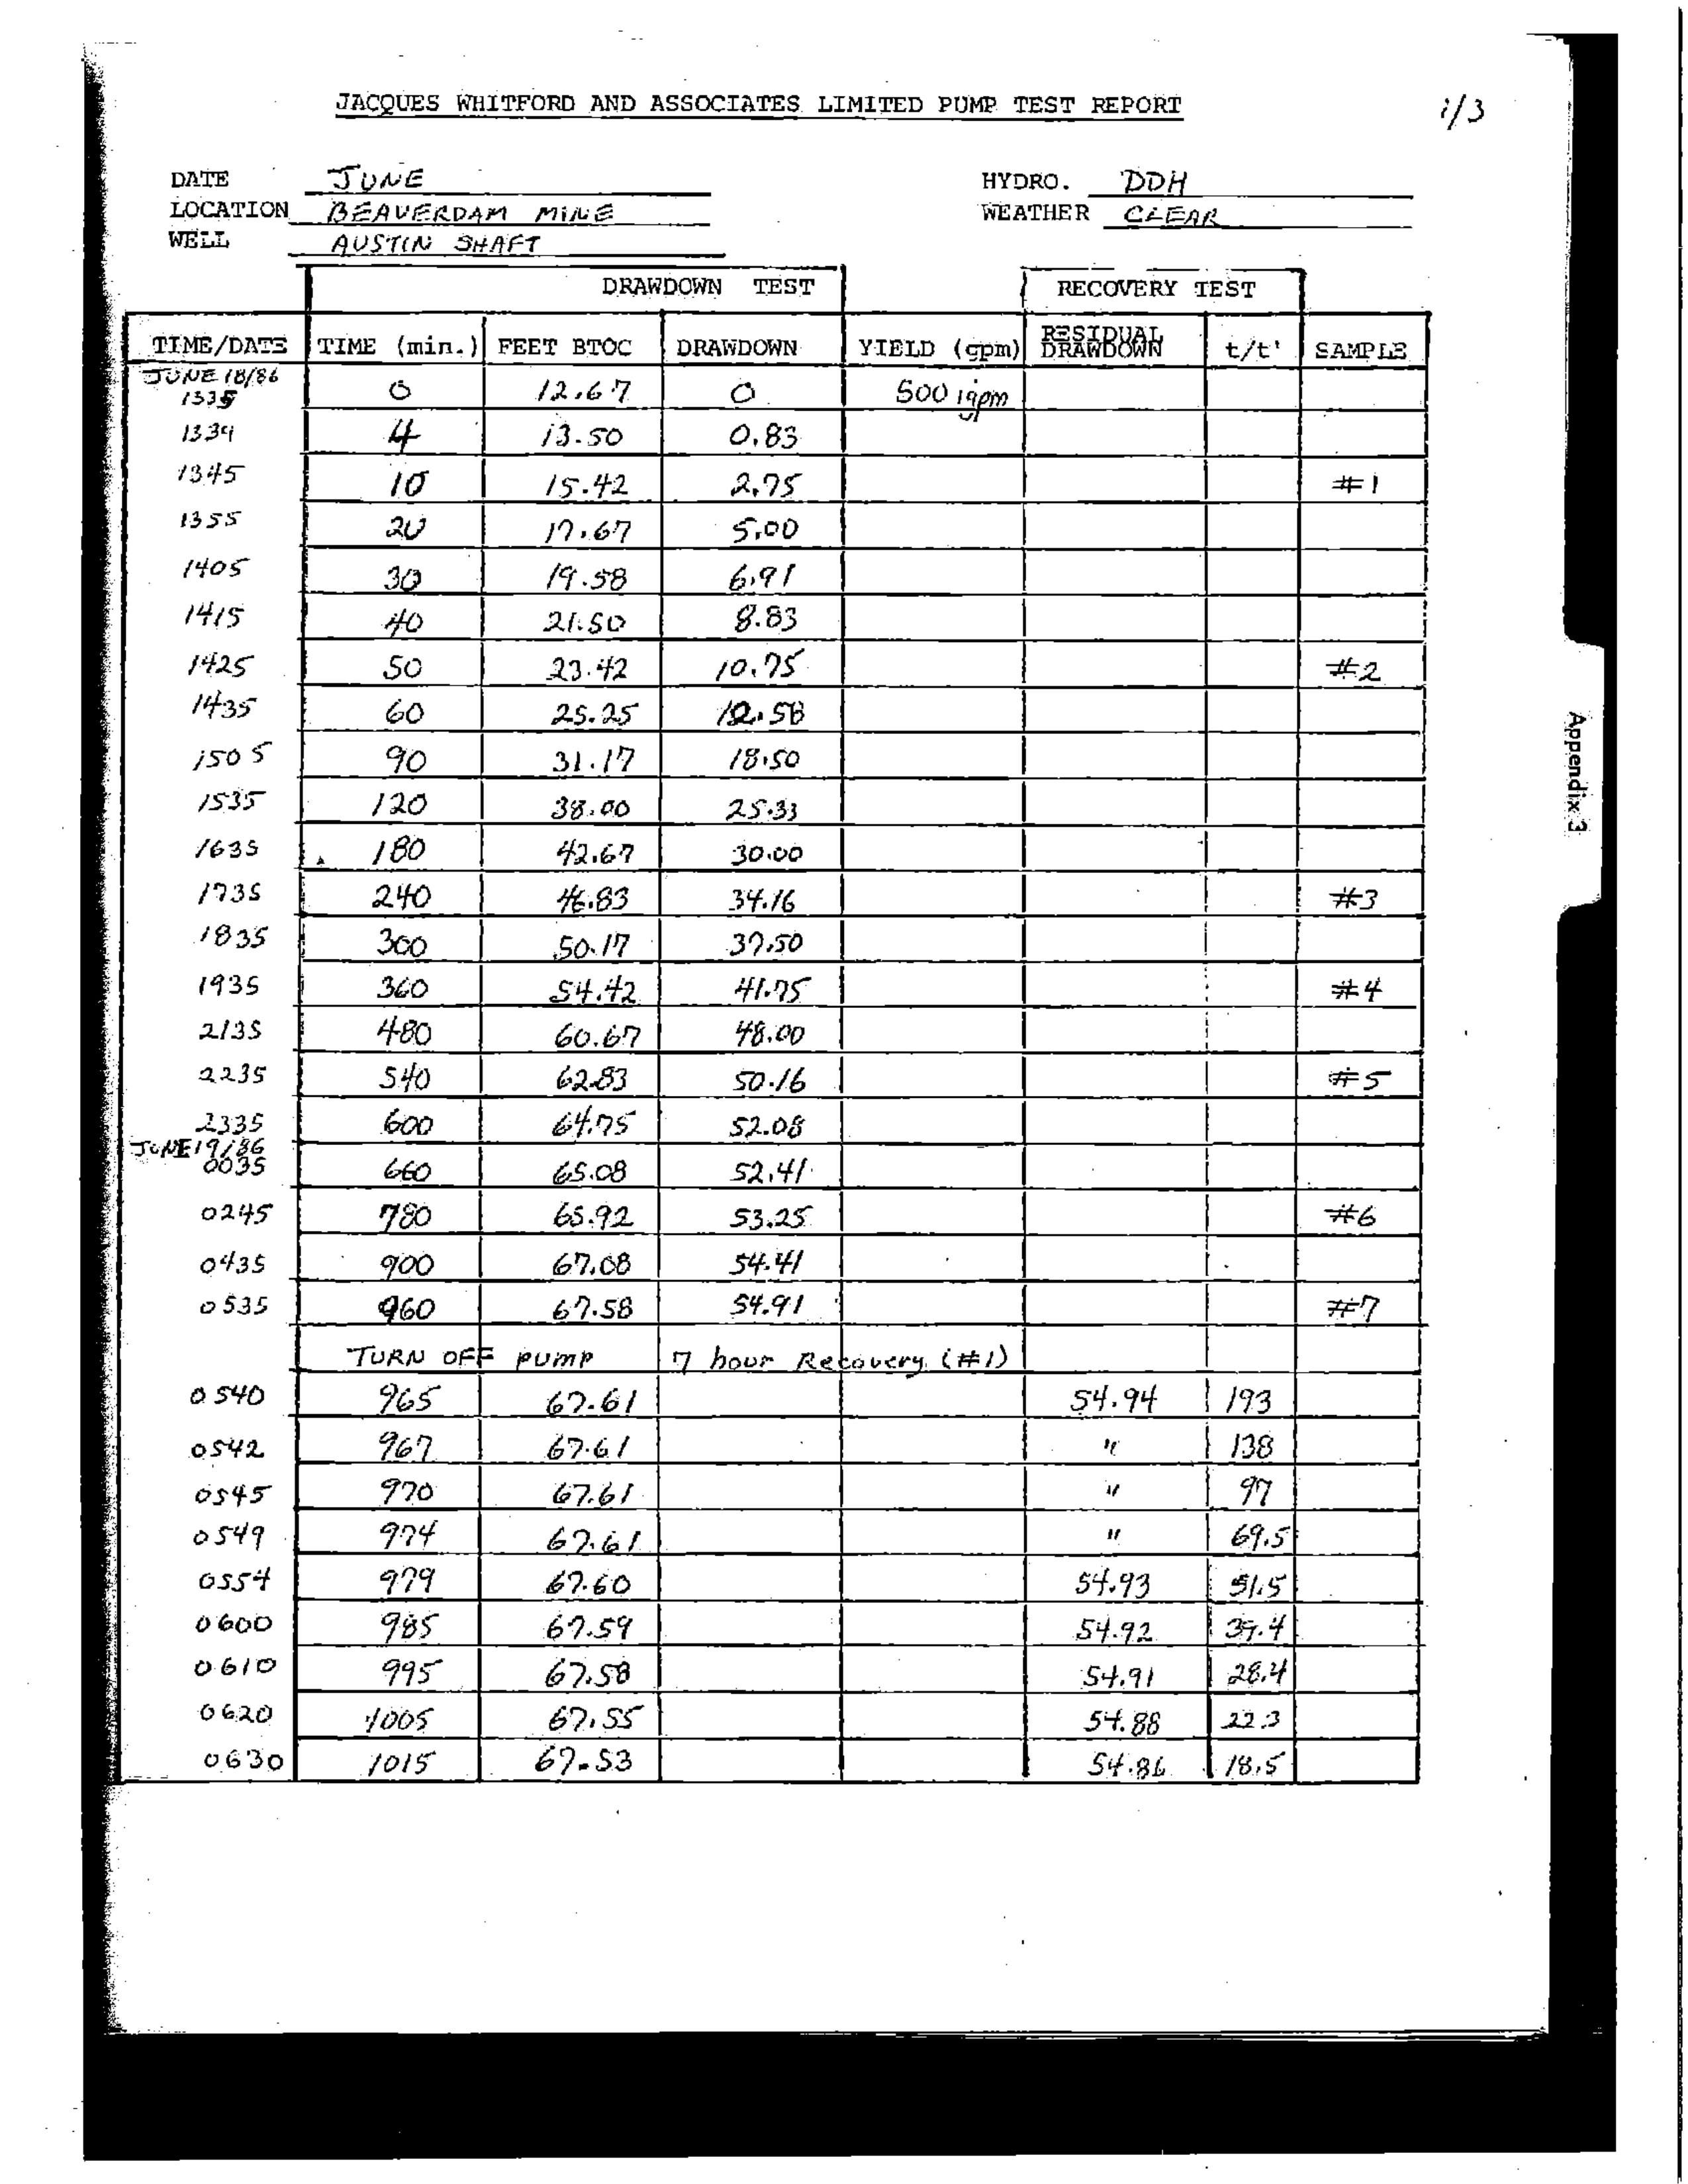 JACQUES WHITFORD AND ASSOCIATES LIMITED PUMP TEST REPORT 1/3
DATE JUNE HYDRO. DDH
LOCATION BEAVERDAM MINE WEATHER CLEAR
WELL AUSTIN SHAFT
DRAWDOWN TEST RECOVERY TEST
TIME/DATE TIME (min.) FEET BTOC DRAWDOWN YIELD (gpm) RESIDUAL DRAWDOWN t/t' SAMPLE
JUNE 18/86
1335 0 12.67 0 500 igpm
1339 4 13.50 0.83
1345 10 15.42 2.75 #1
1355 20 17.67 5.00
1405 30 19.58 6.91
1415 40 21.50 8.83
1425 50 23.42 10.75 #2
1435 60 25.25 12.58
1505 90 31.17 18.50
1535 120 38.00 25.33
1635 180 42.67 30.00
1735 240 46.83 34.16 #3
1835 300 50.17 37.50
1935 360 54.42 41.75 #4
2135 480 60.67 48.00
2235 540 62.83 50.16 #5
2335 600 64.75 52.08
JUNE 19/86
0035 660 65.08 52.41
0245 780 65.92 53.25 #6
0435 900 67.08 54.41
0535 960 67.58 54.91 #7
TURN OFF PUMP 7 hour Recovery (#1)
0540 965 67.61 54.94 193
0542 967 67.61 " 138
0545 970 67.61 " 97
0549 974 67.61 " 69.5
0554 979 67.60 54.93 51.5
0600 985 67.59 54.92 39.4
0610 995 67.58 54.91 28.4
0620 1005 67.55 54.88 22.3
0630 1015 67.53 54.86 18.5
Appendix 3